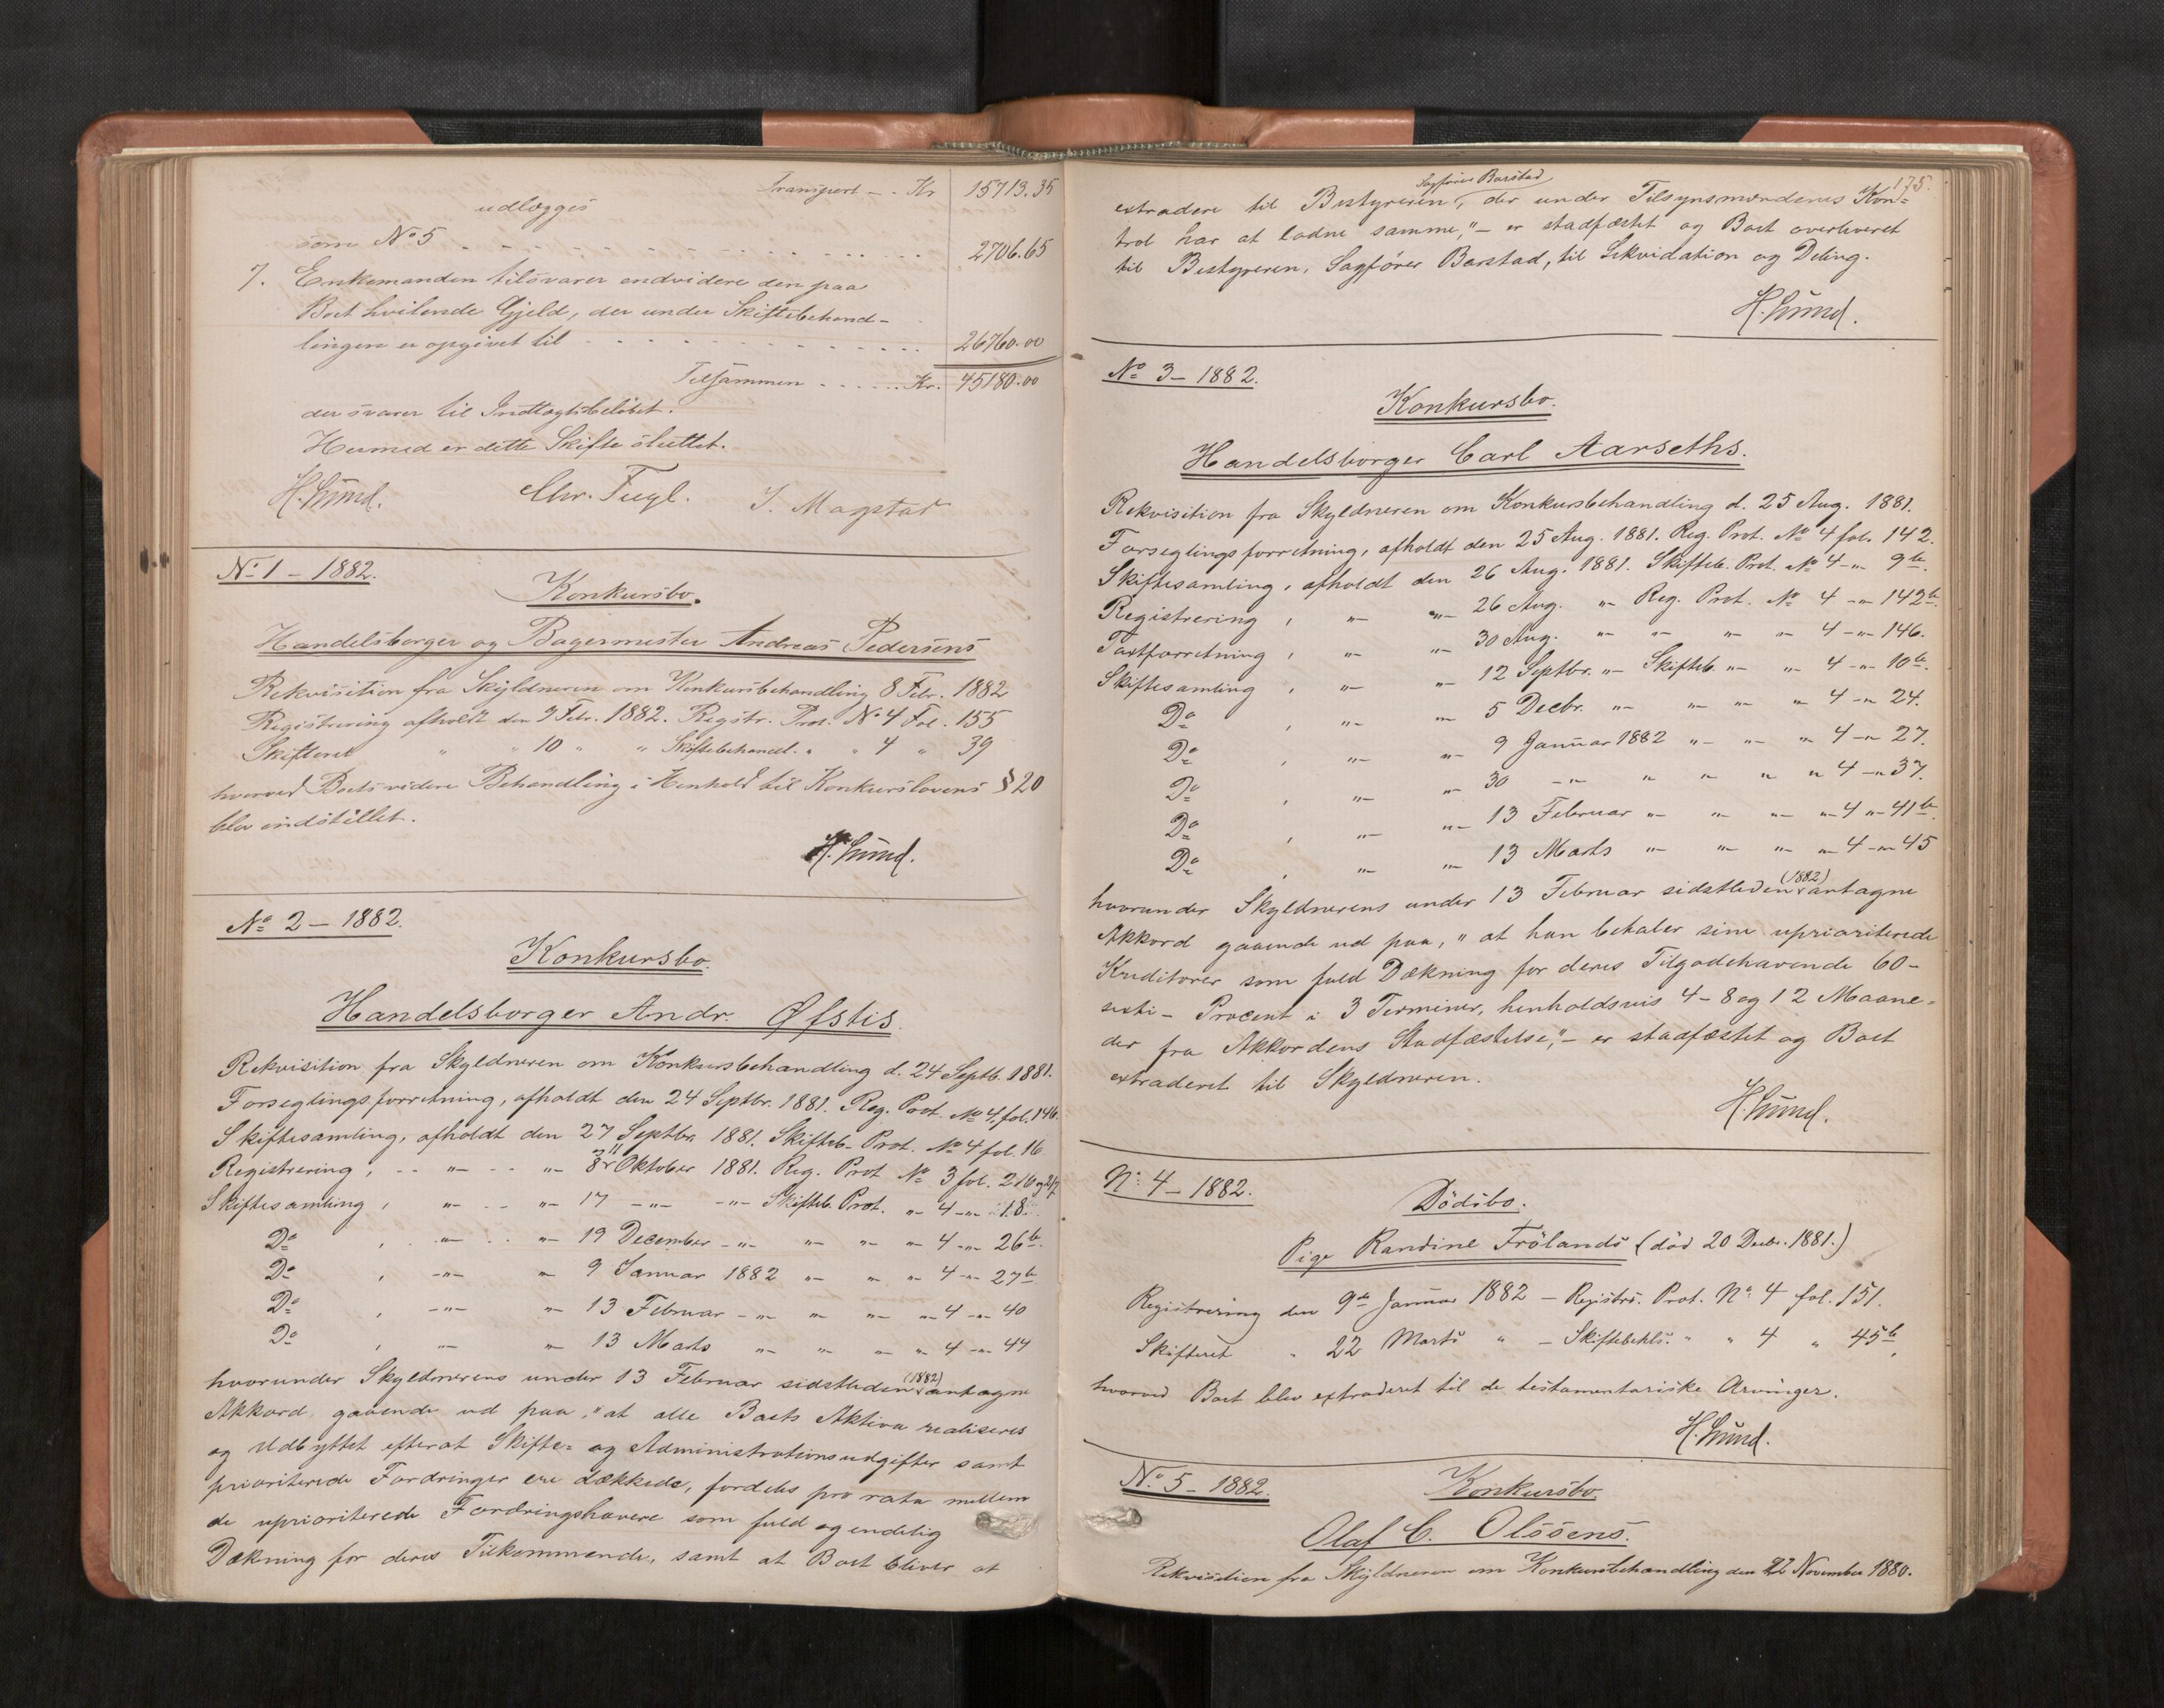 Transport - . Kr 15713.35
udlægges
som No 5 2706.65
7. Enkemanden tilsvarer endvidere den paa
Boet hvilende Gjeld, der under Skiftebehand-
lingen er opgivet til 26760.00
Tilsammen Kr. 45180.00
der svarer til Indtægtsbeløbet.
Hermed er dette Skifte sluttet.
H. Lund. Chr. Fugl. J. Magstad
No 1 - 1882.
Konkursbo.
Handelsborger og Bagermester Andreas Pedersens
Rekvisition fra Skyldneren om Konkursbehandling 8 Febr. 1882
Registrering afholdt den 9 Febr. 1882. Registr. Prot. No 4 Fol. 155
Skifteret " " 10 " " Skiftebehandl. " " 4 " 39
hvorved Boets videre Behandling i Henhold til Konkurslovens § 20
blev indstillet.
H. Lund.
No 2 - 1882.
Konkursbo.
Handelsborger Andr. Øfstis.
Rekvisition fra Skyldneren om Konkursbehandling d. 24 Septb. 1881.
Forseglingsforretning, afholdt den 24 Septbr. 1881. Reg. Prot. No 4, fol. 146.
Skiftesamling, afholdt den 27 Septbr. 1881. Skifteb. Prot. No 4 fol. 16
Registrering, - " - " - Oktober 1881. Reg. Prot No 3 fol. 216 og 217
Skiftesamling, - " - - " - 17 - " - - " - Skifteb. Prot. - " - 4 - " - 18.
Do , - " - - " - 19 December - " - - " - - " - - " - 4 - " - 26b.
Do , - " - - " - 9 Januar 1882 - " - - " - - " - 4 - " - 27b
Do , - " - - " - 13 Februar - " - - " - - " - - " - 4 - " - 40
Do , - " - - " - 13 Marts - " - - " - - " - - " - 4 - " - 44
hvorunder Skyldnerens under 13 Februar sidstleden (1882) antagne
Akkord, gaaende ud paa, "at alle Boets Aktiva realiseres
og Udbyttet efterat Skifte- og Administrationsudgifter samt
prioriterede Fordringer ere dækkede, fordeles pro rata mellem
de uprioriterede Fordringshavere som fuld og endelig
Dækning for deres Tilkommende, samt at Boet bliver at
175.
extradere til Bestyreren, Sagfører Barstad, der under Tilsynsmændenes Kon-
trol har at ladne samme," - er stadfæstet og Boet overleveret
til Bestyreren, Sagfører Barstad, til Likvidation og Deling.
H. Lund.
No 3 - 1882.
Konkursbo.
Handelsborger Carl Aarseths.
Rekvisition fra Skyldneren om Konkursbehandling d. 25 Aug. 1881.
Forseglingsforretning, afholdt den 25 Aug. 1881. Reg. Prot. No 4 fol. 142.
Skiftesamling, afholdt den 26 Aug. 1881. Skifteb. Prot. No 4 - " - 9b.
Registrering , - " - - " - 26 Aug. - " - Reg. Prot. No 4 - " - 142b.
Taxtforretning , - " - - " - 30 Aug. - " - - " - - " - - " - 4 - " - 146.
Skiftesamling , - " - - " - 12 Septbr. - " - Skifteb. - " - - " - 4 - " - 10b.
Do , - " - - " - 5 Decbr. - " - - " - - " - - " - 4 - " - 24.
Do , - " - - " - 9 Januar 1882 - " - - " - - " - 4 - " - 27.
Do , - " - - " - 30 - " - - " - - " - - " - - " - 4 - " - 37.
Do , - " - - " - 13 Februar - " - - " - - " - - " - 4 - " - 41b.
Do , - " - - " - 13 Marts - " - - " - - " - - " - 4 - " - 45
hvorunder Skyldnerens under 13 Februar sidstleden (1882) antagne
Akkord gaaende ud paa, "at han betaler sine uprioriterede
Kreditorer som fuld Dækning for deres Tilgodehavende 60 -
sexti - Procent i 3 Terminer, henholdsvis 4 - 8 og 12 Maane-
der fra Akkordens Stadfæstelse," - er stadfæstet og Boet
extraderet til Skyldneren.
H. Lund.
No 4 - 1882.
Dödsbo.
Pige Randine Frölands (död 20 Decbr. 1881.)
Registrering den 9de Januar 1882 - Registrs. Prot. No 4 fol. 151.
Skifteret " 22 Marts " - Skiftebehls. " " 4 " 45b,
hvorved Boet blev extraderet til de testamentariske Arvinger.
H. Lund.
No 5 - 1882.
Konkursbo
Olaf C. Olssens.
Rekvisition fra Skyldneren om Konkursbehandling den 22 November 1880.